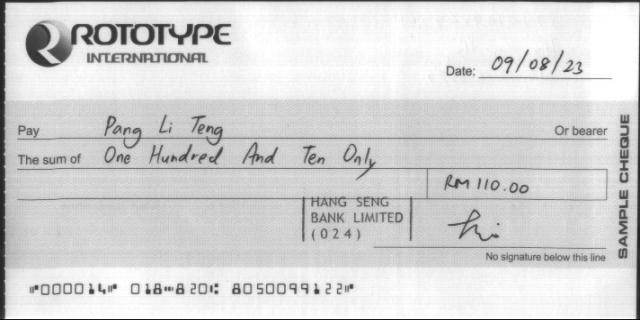 ROTOTYPE
INTERNATIONAL
Date: 09/08/23
Pay Pang Li Teng Or bearer
The sum of One Hundred And Ten Only
RM 110.00
HANG SENG
BANK LIMITED
(024)
No signature below this line
SAMPLE CHEQUE
⑈000014⑈ 018⑉820⑆ 8050099122⑈